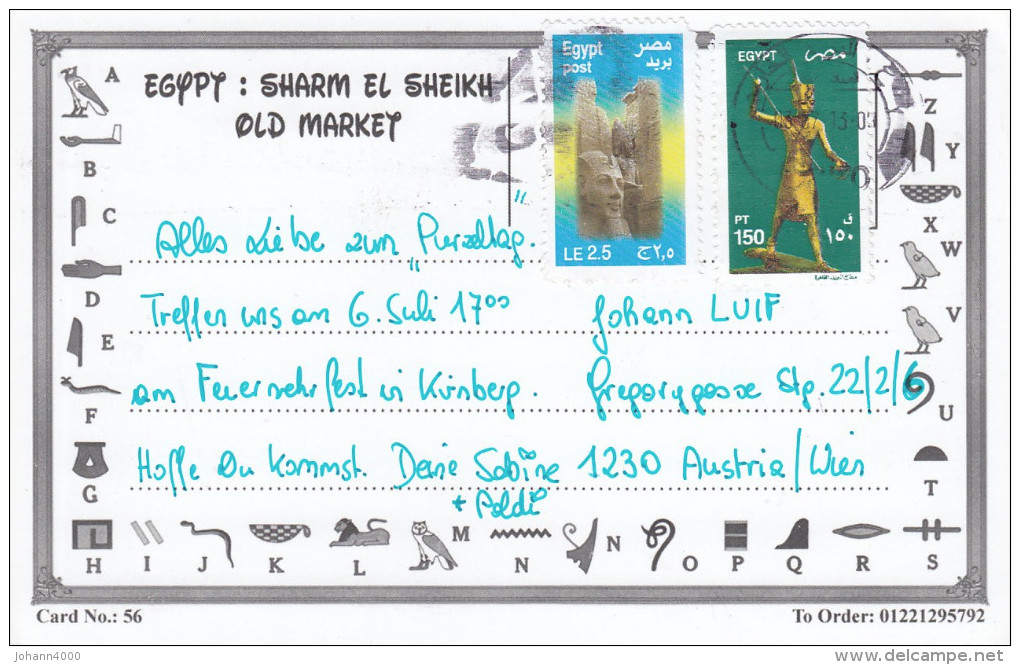 EGYPT : SHARM EL SHEIKH
OLD MARKET
Egypt
post
مصر
بريد
LE 2.5
ج ٢,٥
EGYPT
مصر
PT
150
ق
١٥٠
Alles Liebe zum "Purzeltag".
Treffen uns am 6. Juli 17⁰⁰
am Feuerwehrfest in Kirnberg.
Hoffe Du kommst. Deine Sabine
+ Poldi
Johann LUIF
Gregorygasse Stg. 22/2/6
1230 Austria/Wien
A
B
C
D
E
F
G
H
I
J
K
L
M
N
N
O
P
Q
R
S
T
U
V
W
X
Y
Z
Card No.: 56
To Order: 01221295792
johann4000
delcampe.net